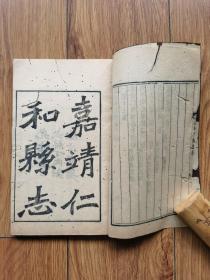 嘉靖仁
和縣志